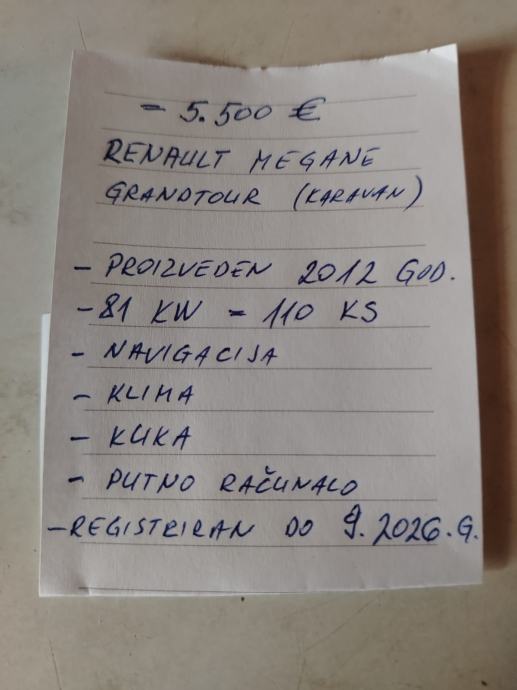 - 5.500 €
RENAULT MEGANE
GRANDTOUR (KARAVAN)
- PROIZVEDEN 2012 GOD.
- 81 KW = 110 KS
- NAVIGACIJA
- KLIMA
- KUKA
- PUTNO RAČUNALO
- REGISTRIRAN DO 9. 2026. G.